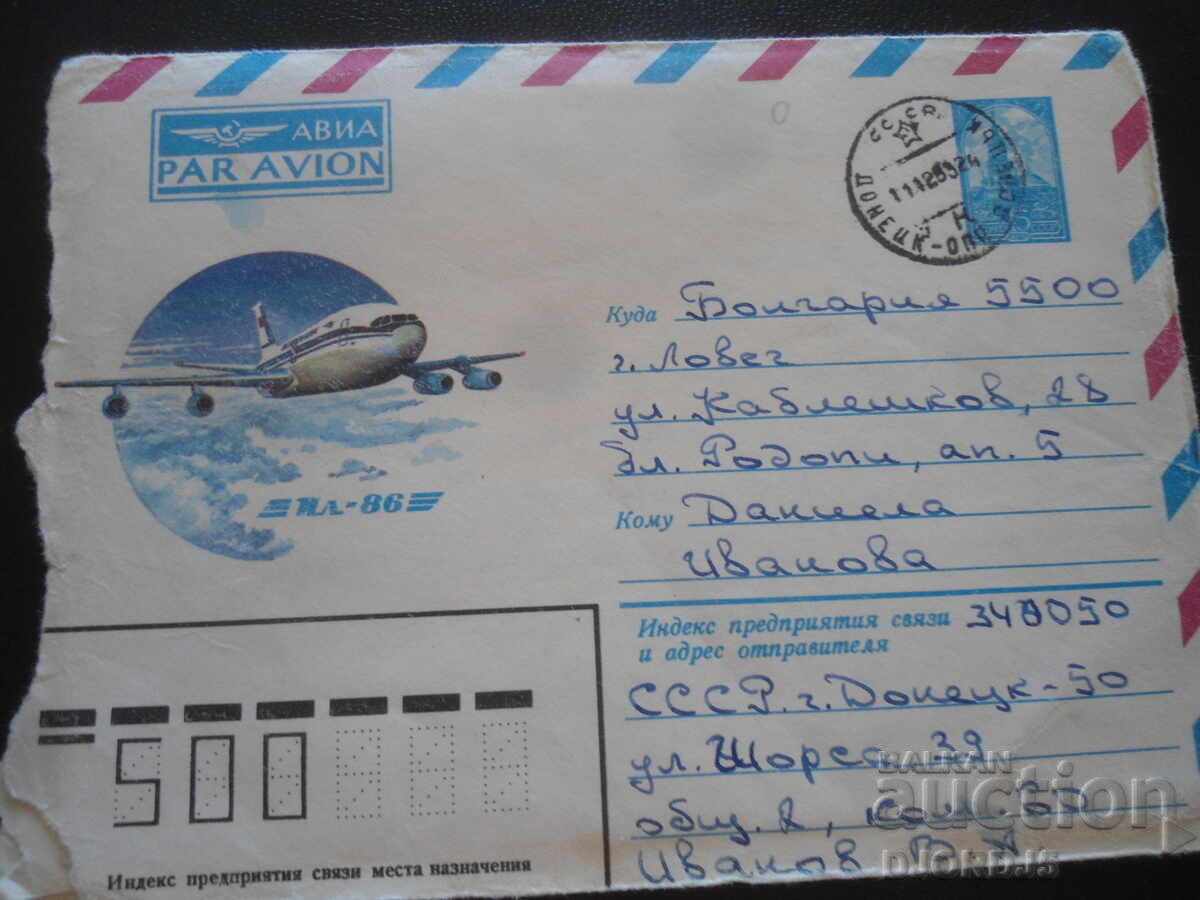 АВИА
PAR AVION
СССР
ДОНЕЦК-
Ил-86
Куда Болгария 5500
г. Ловеч
ул. Каблешков, 28
бл. Родопи, ап. 5
Кому Даниела
Иванова
Индекс предприятия связи 340050
и адрес отправителя
СССР. г. Донецк-50
ул. Щорса 39
общ. 2, ком.
Иванов В
500
Индекс предприятия связи места назначения
BALKAN
auction
DJORDJ5